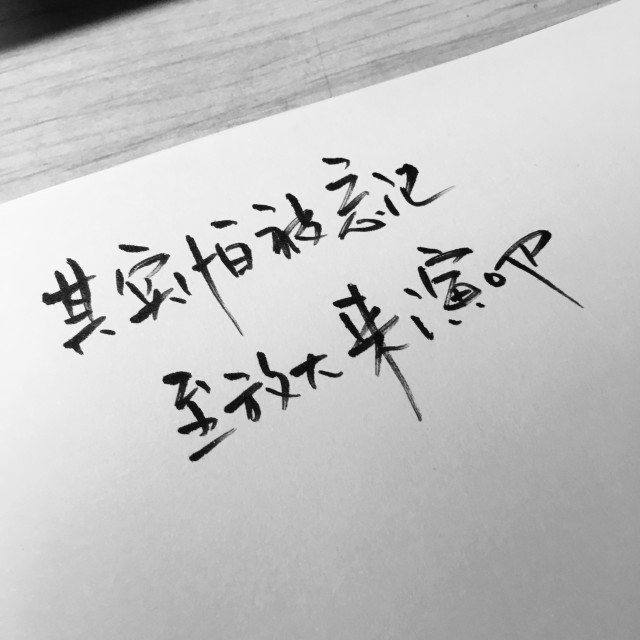 其实怕被忘记
至放大来演吧